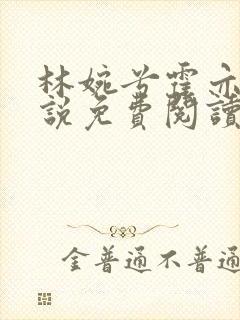 林婉兮霍亦
說免費閱讀
金普通不普通